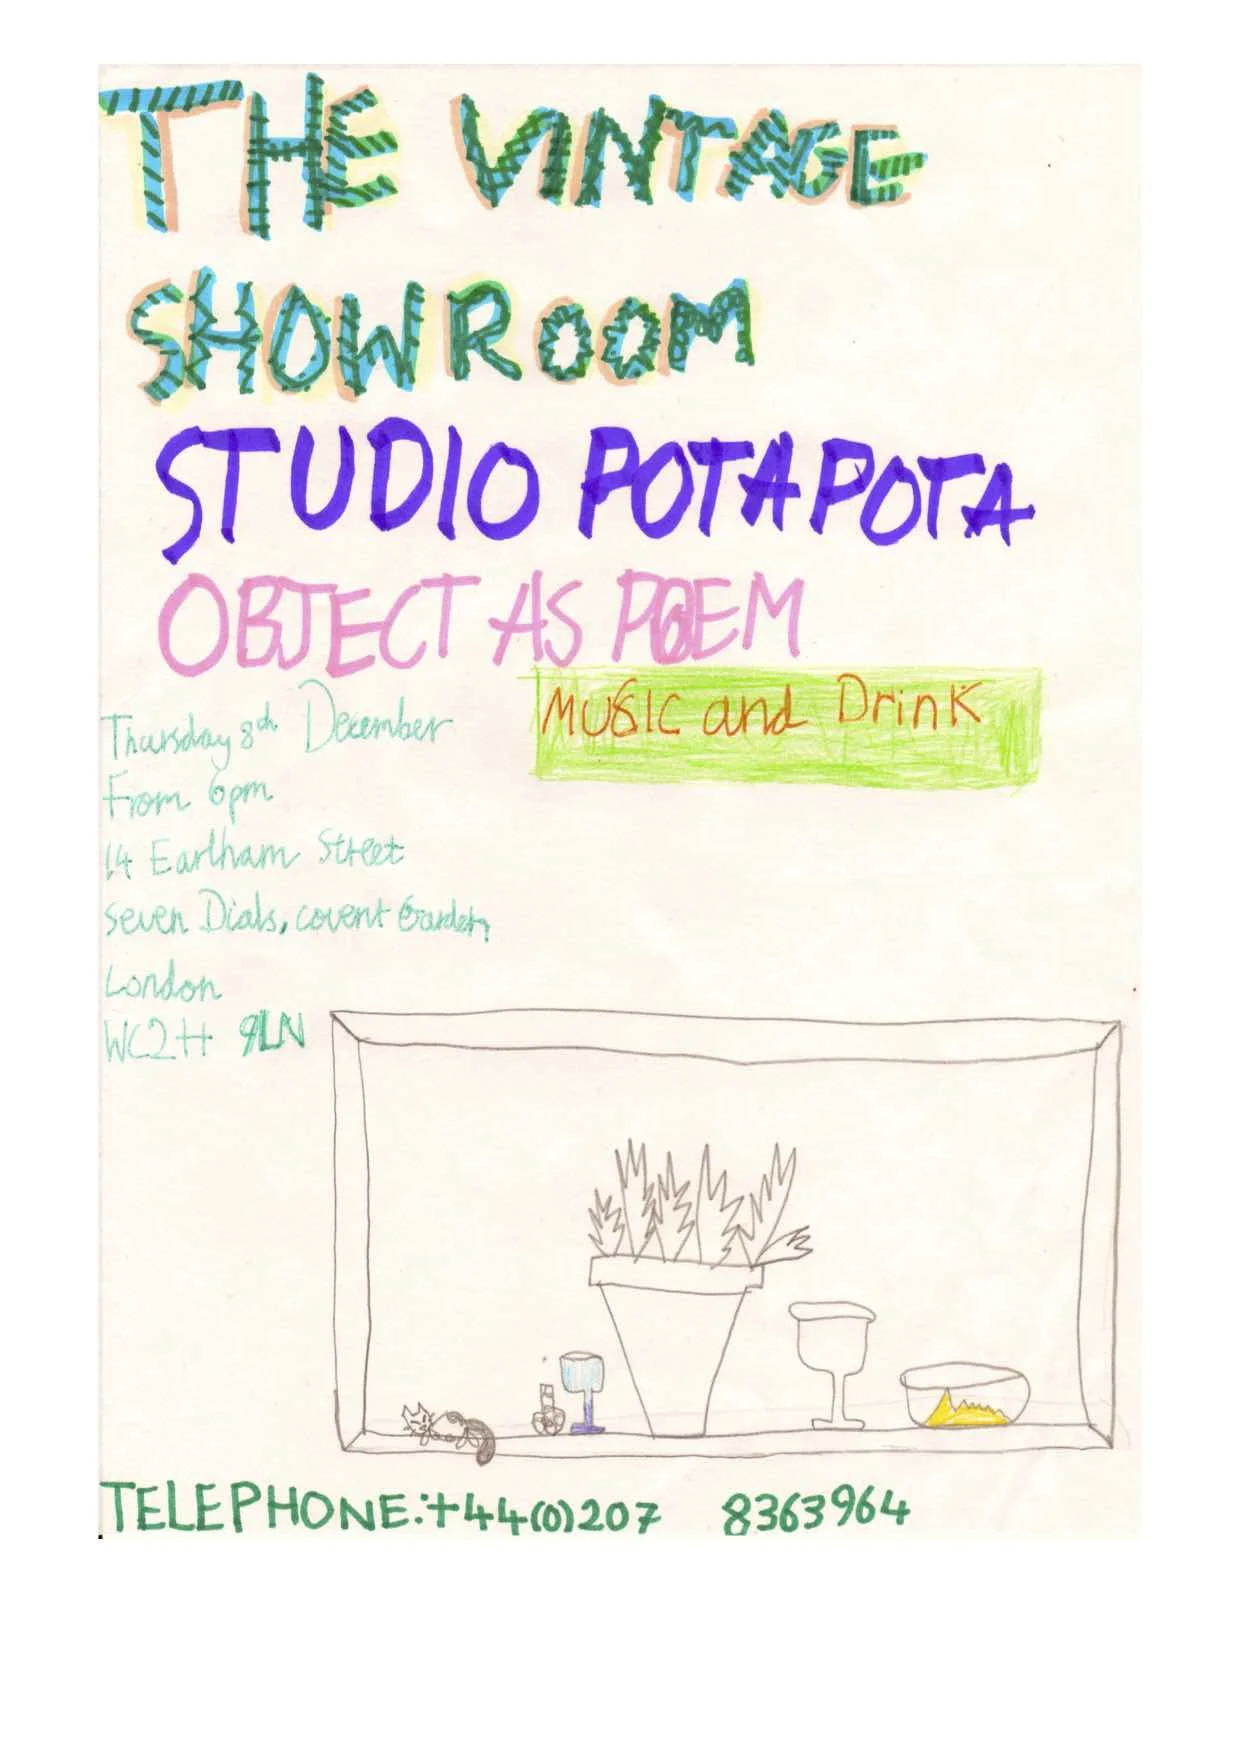 THE VINTAGE
SHOWROOM
STUDIO POTAPOTA
OBJECT AS POEM
Music and Drink
Thursday 8th December
From 6pm
14 Earlham Street
Seven Dials, covent Garden,
London
WC2H 9LN
TELEPHONE:+44(0)207 8363964